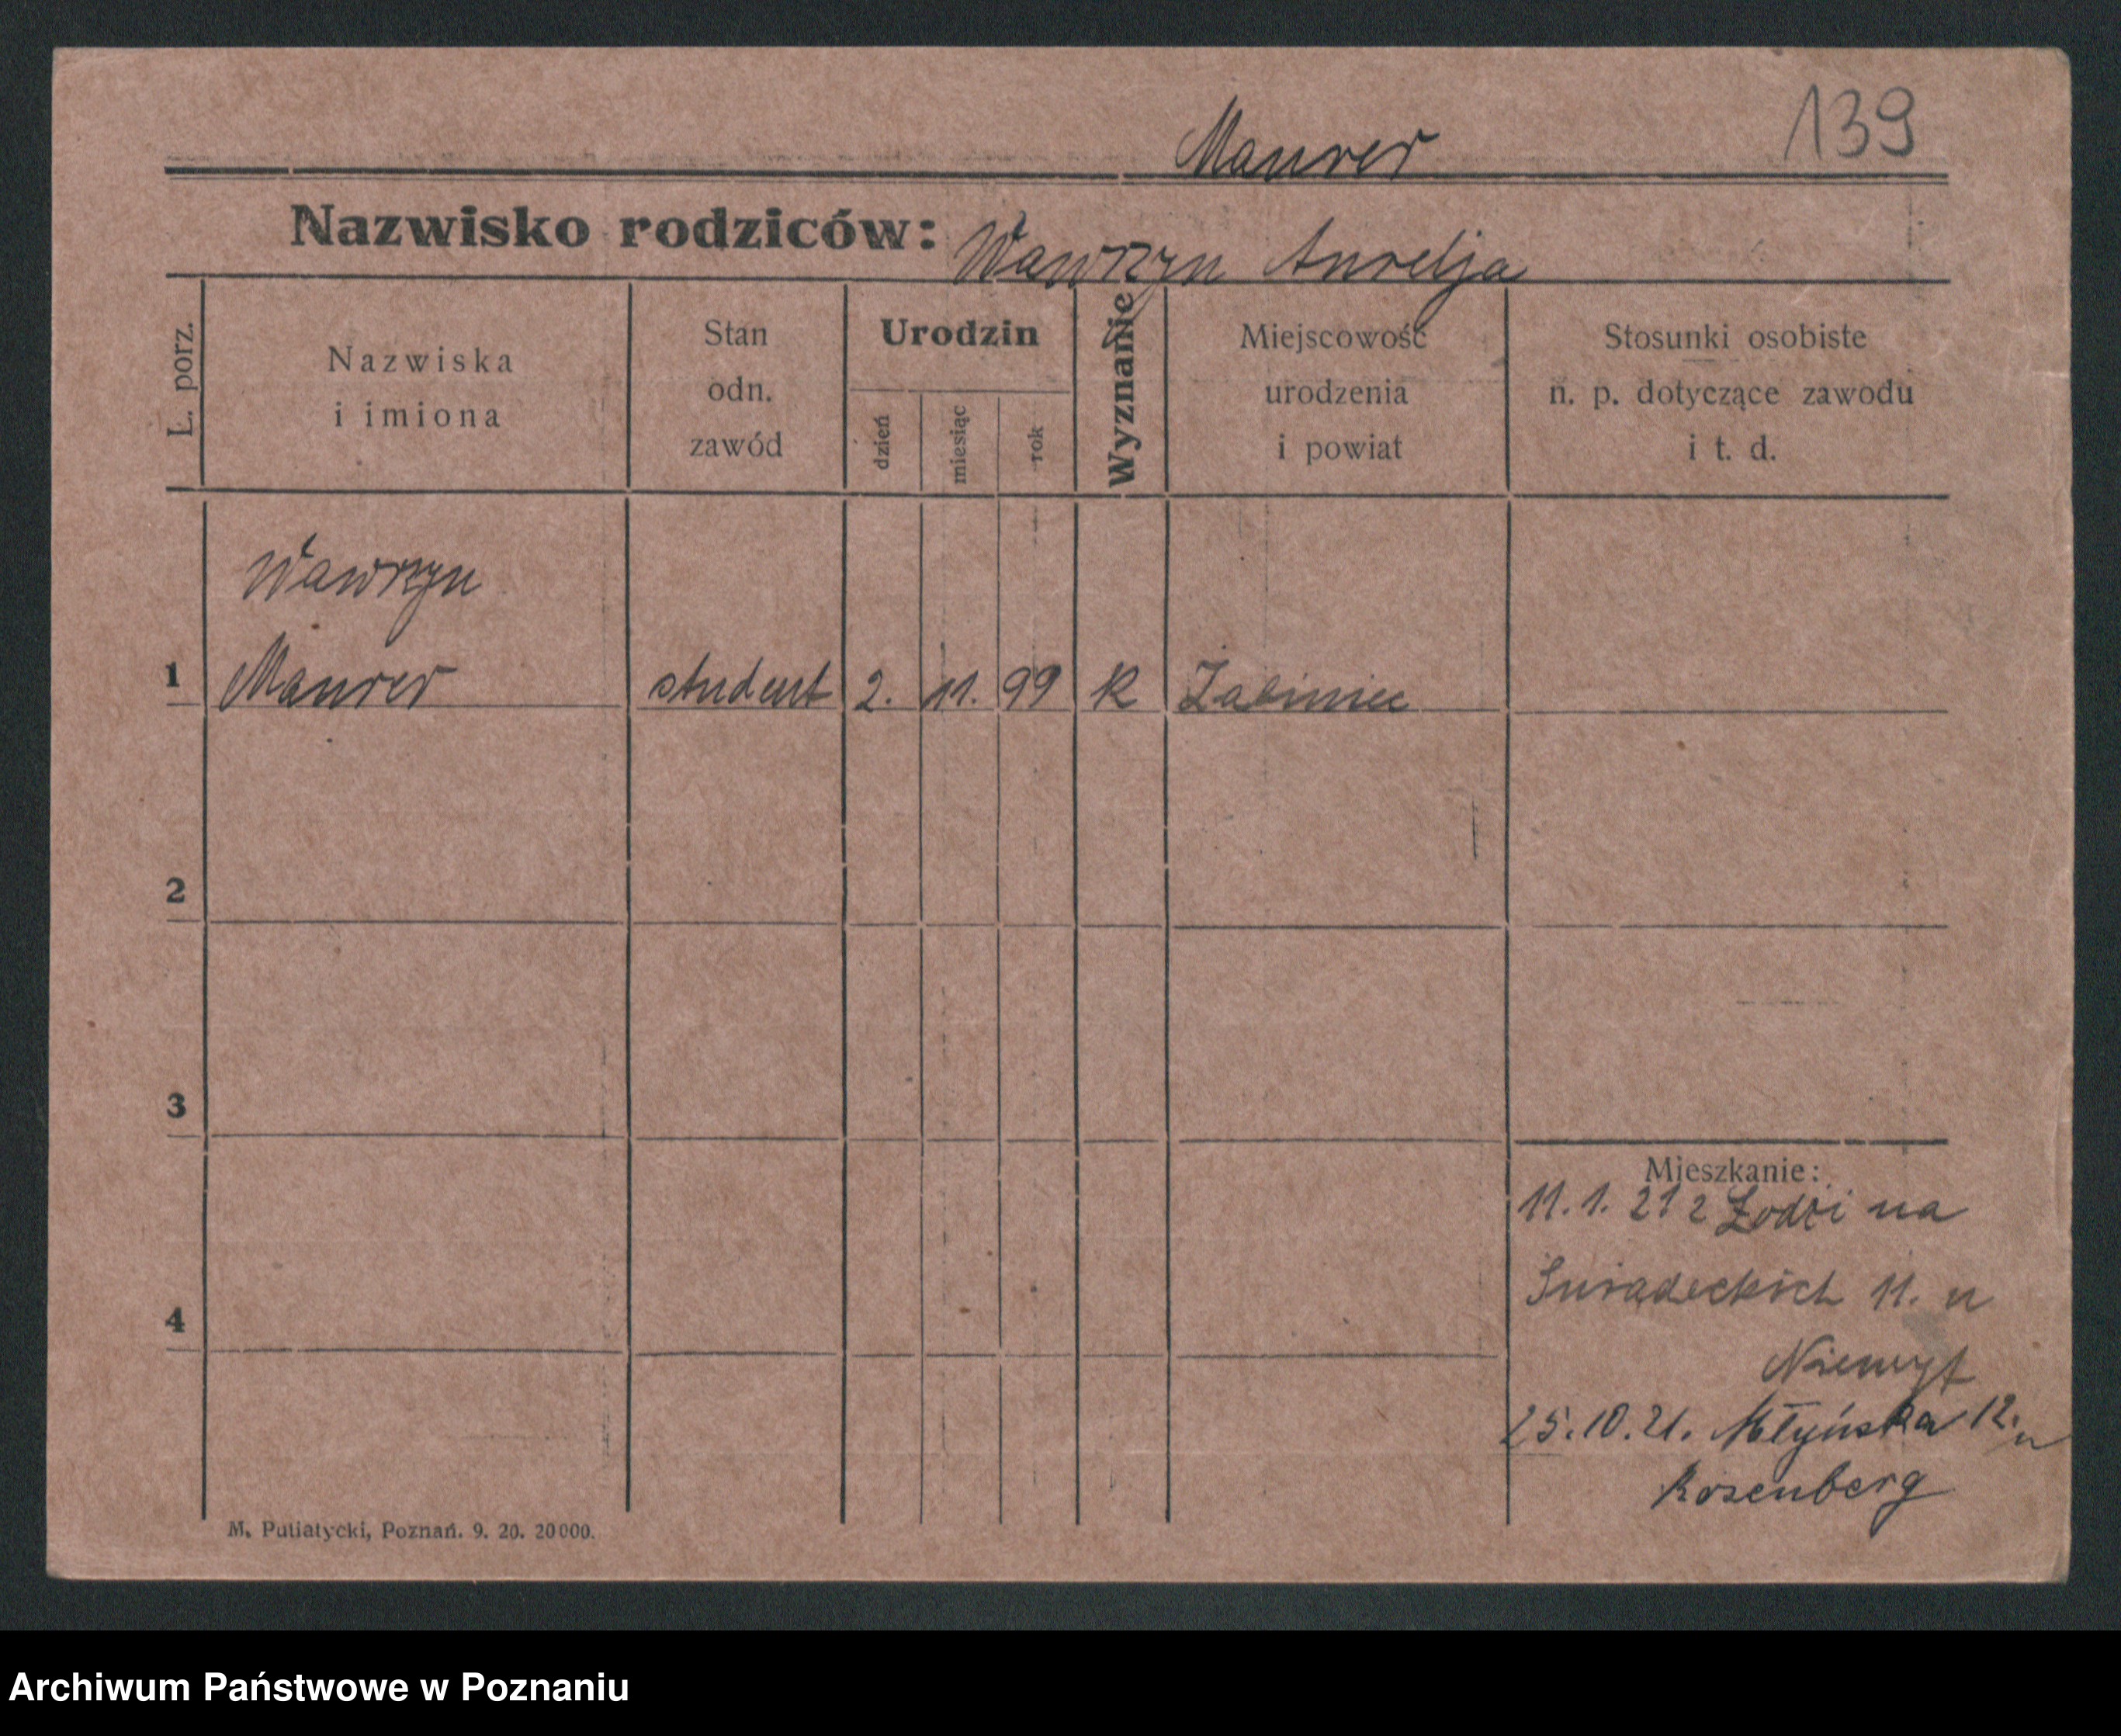 139
Maurer
Nazwisko rodziców: Wawrzyn Aurelja
L. porz.
Nazwiska
i imiona
Stan
odn.
zawód
Urodzin
dzień
miesiąc
rok
Wyznanie
Miejscowość
urodzenia
i powiat
Stosunki osobiste
n. p. dotyczące zawodu
i t. d.
Wawrzyn
1 Maurer student 2. 11. 99 K Żabiniec
2
3
4
Mieszkanie:
11. 1. 21 z Łodzi na
Śniadeckich 11. u
25. 10. 21. Młyńska 12. u
Rosenberg
M. Putiatycki, Poznań. 9. 20. 20000.
Archiwum Państwowe w Poznaniu